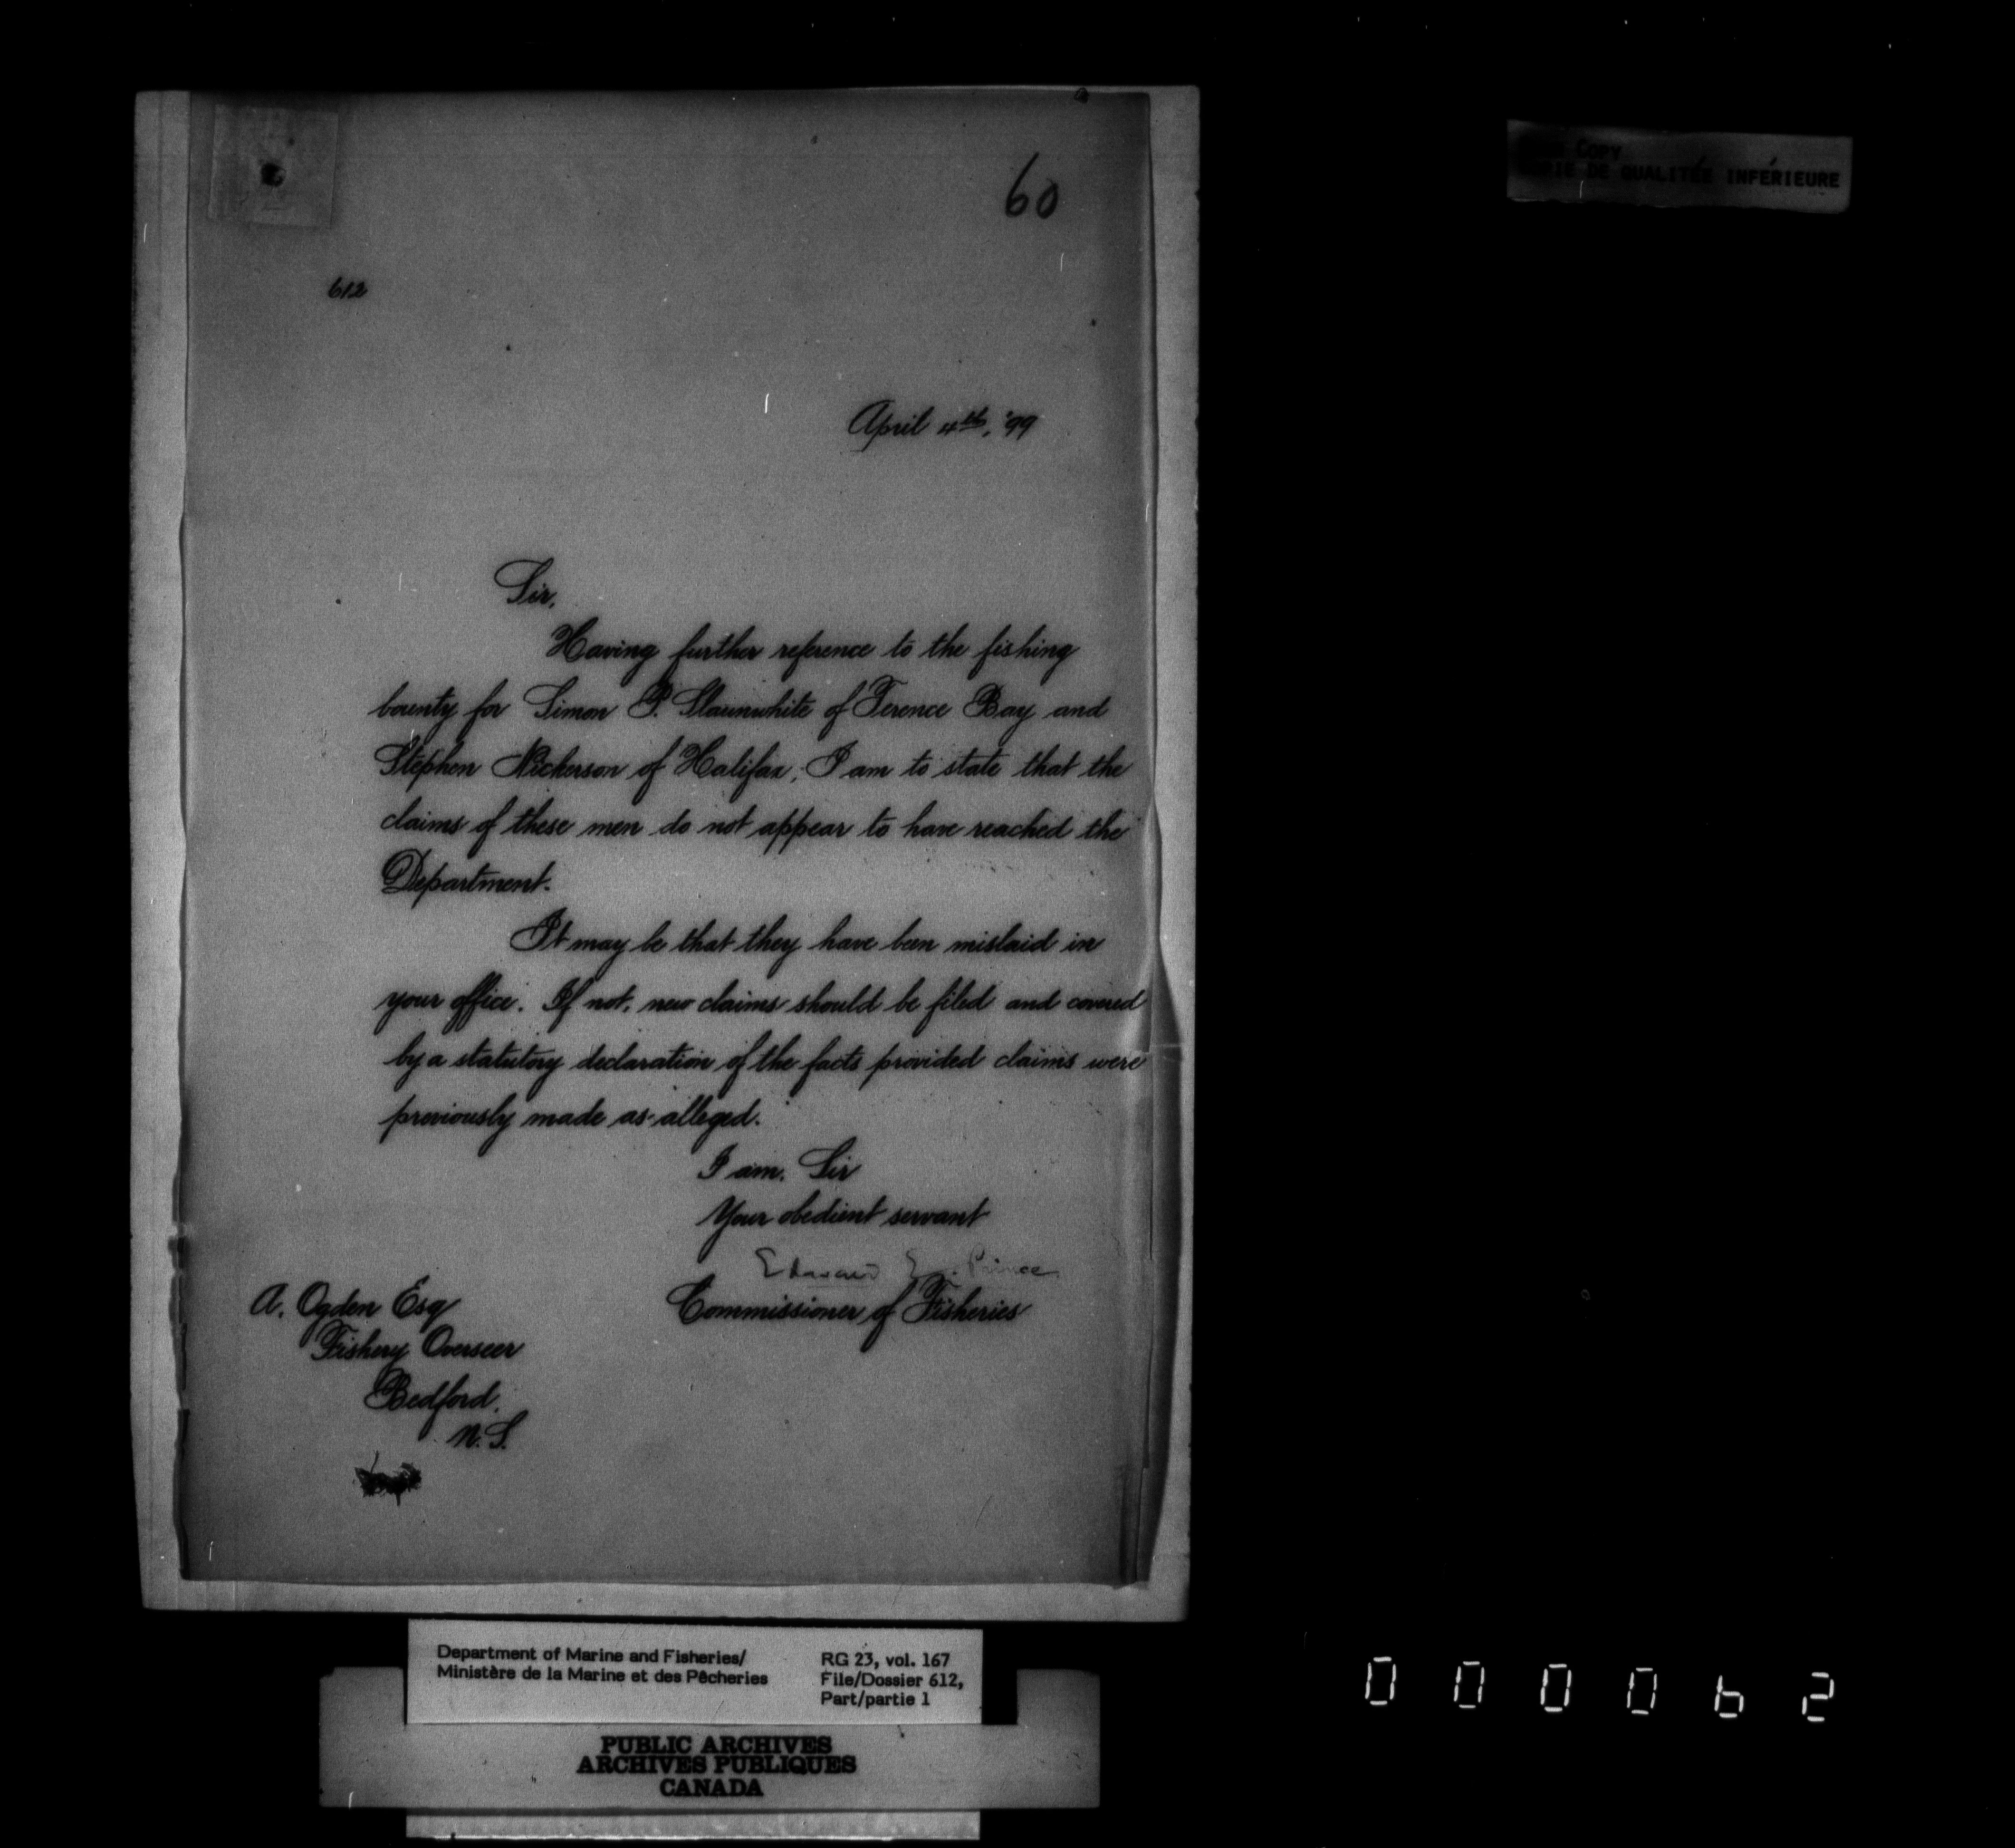 60
612
April 4th, '99
Sir,
Having further reference to the fishing
bounty for Simon P. Slaunwhite of Terence Bay and
Stephen Nickerson of Halifax, I am to state that the
claims of these men do not appear to have reached the
Department.
It may be that they have been mislaid in
your office. If not, new claims should be filed and covered
by a statutory declaration of the facts provided claims were
previously made as alleged.
I am, Sir
Your obedient servant
Edward E. Prince
Commissioner of Fisheries
A. Ogden Esq
Fishery Overseer
Bedford,
N.S.
COPY
DE QUALITÉE INFÉRIEURE
Department of Marine and Fisheries/
Ministère de la Marine et des Pêcheries
RG 23, vol. 167
File/Dossier 612,
Part/partie 1
PUBLIC ARCHIVES
ARCHIVES PUBLIQUES
CANADA
000062